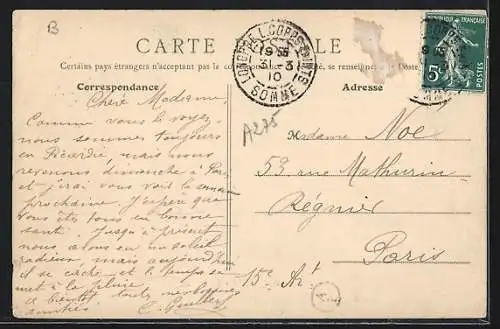 B
CARTE POSTALE
Certains pays étrangers n'acceptant pas le se renseigner à la Poste
Correspondance
Adresse
LONGPRÉ L. CORPS SAINTS
31-3
10
SOMME
5c
A275
Chère Madame,
Comme vous le voyez,
nous sommes toujours
en Picardie, mais nous
revenons dimanche à Paris
et j'irai vous voir la semaine
prochaine. J'espère que
vous êtes tous en bonne
santé. Jusqu'à présent
nous avons eu un soleil
radieux, mais aujourd'hui
il se cache et le temps se
met à la pluie.
A bientôt toutes nos bonnes
amitiés
Madame Noé
53 rue Mathurin-
Régnier
Paris
15e Art